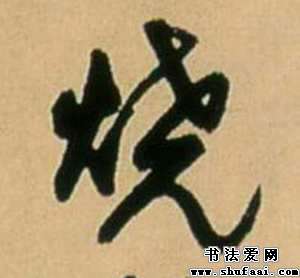 烧
书法爱网
www.shufaai.com